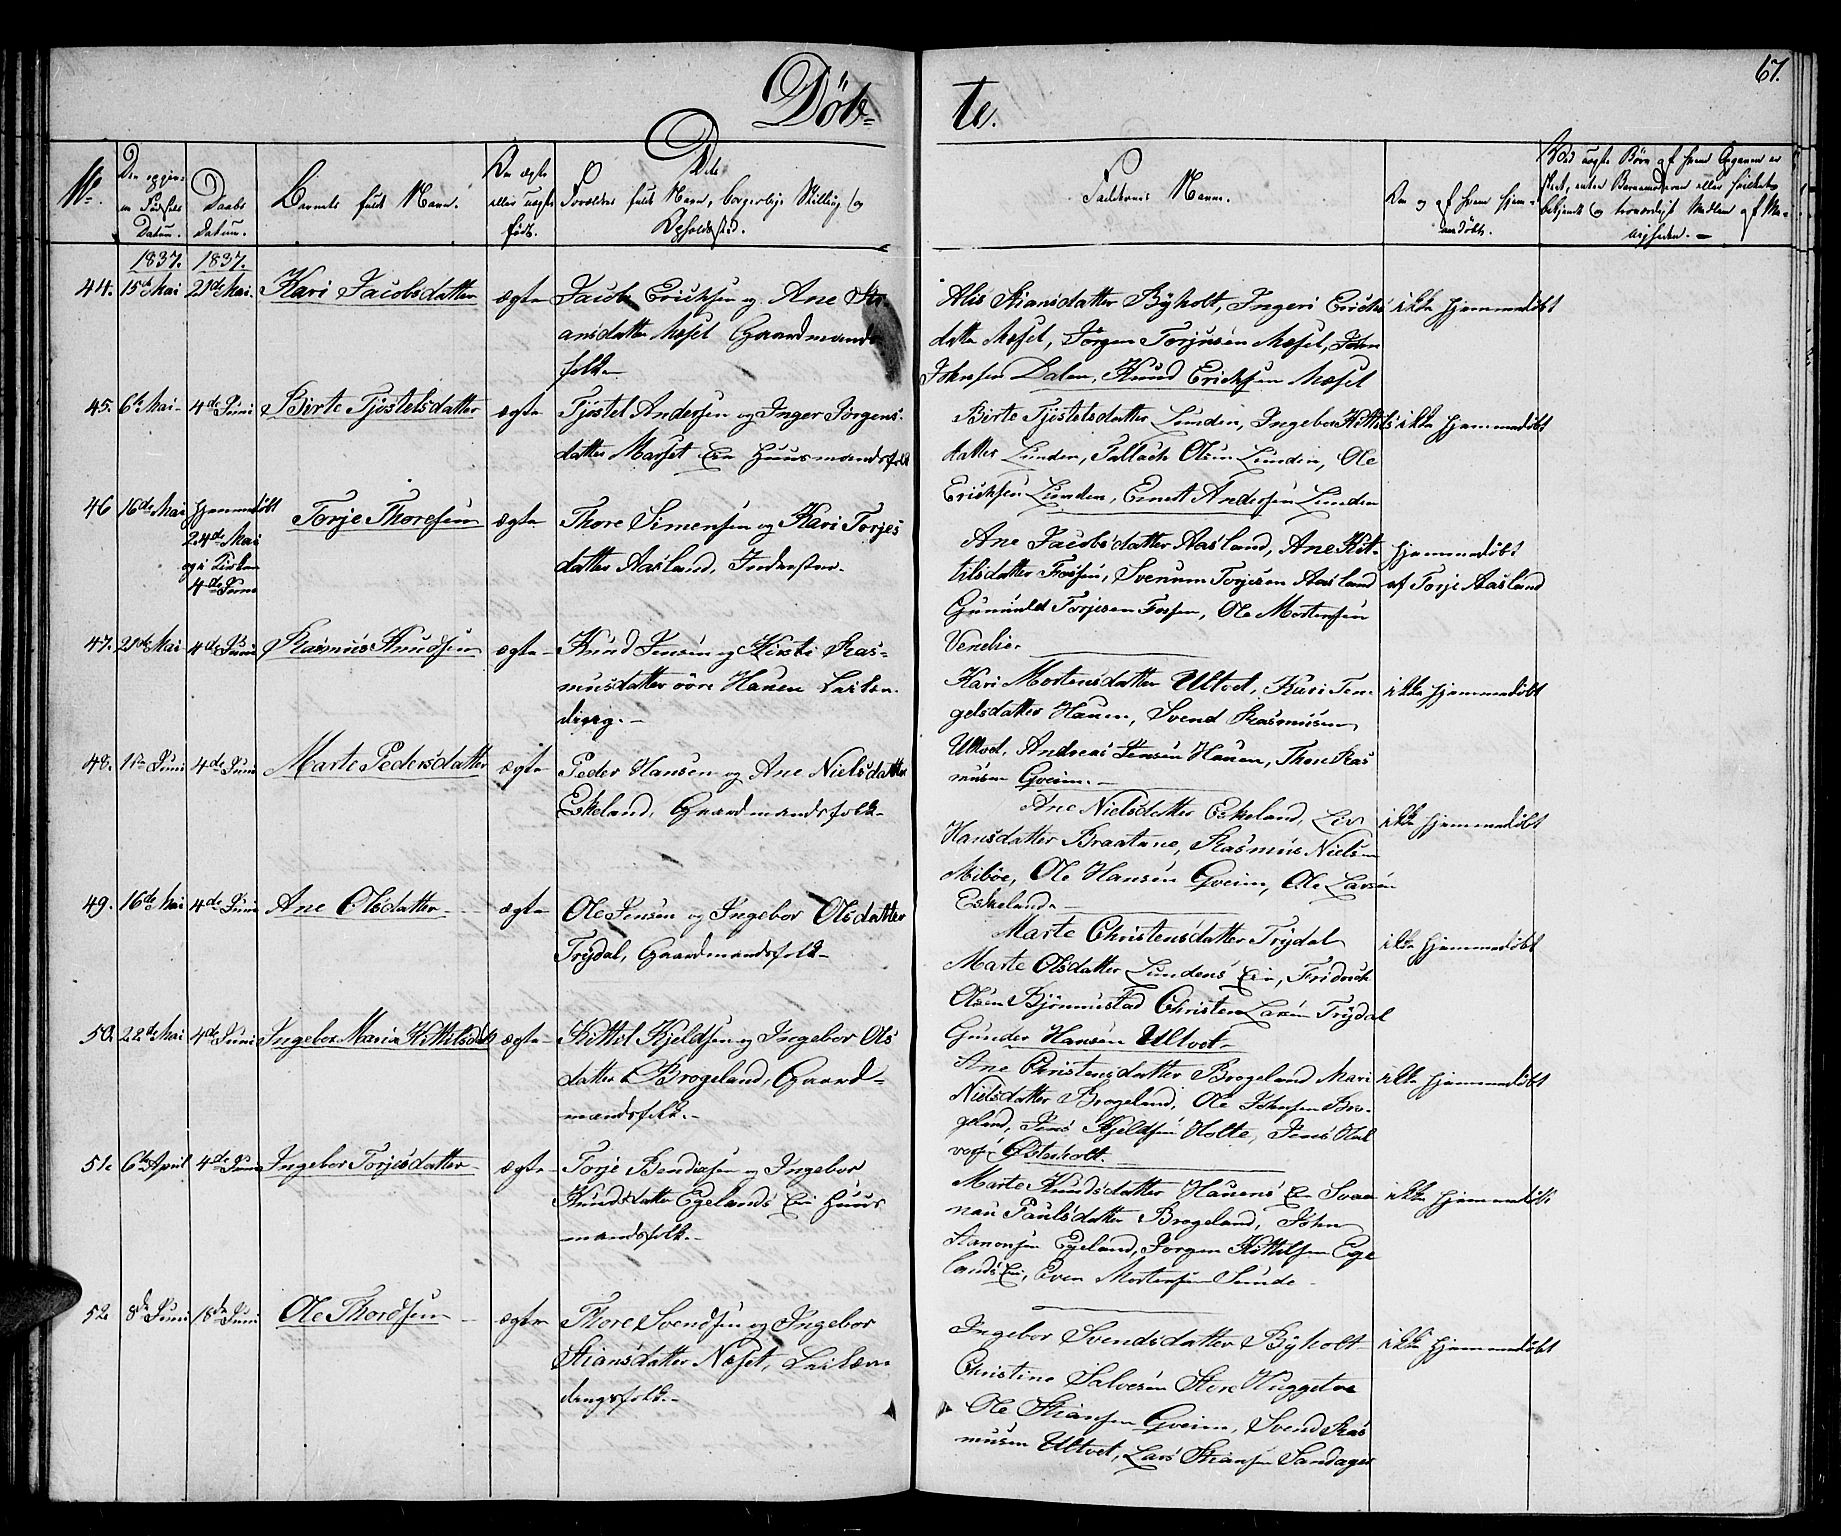 67.
Döb- te.
No.
Den opgivne Fødsels Datum.
Daabs Datum.
Barnets fulde Navn.
Om ægte eller uægte født.
De
Forældres fulde Navn, borgerlige Stilling og
Opholdssted.
Faddernes Navne.
Om og af hvem hjemmedøbt.
1837. 1837.
44. 15de Mai 21de Mai. Kari Jacobsdatter ægte Jacob Ericksen og Ane
ansdatter Mæsel Gaardmands
folk
Alis Stiansdatter Byholt, Ingeri Ericks
datter Mæsel, Jörgen Torjusen Mæsel, John
Johnsen Dalen, Knud Ericksen Mæsel
ikke hjemmedøbt
45. 6te Mai 4de Juni Birte Tjöstelsdatter ægte Tjöstel Andersen og Inger Jörgens
datter Marset Eie Huusmandsfolk
Birte Tjöstelsdatter Lunden, Ingebor Kittels
datter Lunden, Tallach Olsen Lunden, Ole
Ericksen Lunden, Ernst Andersen Lunden
ikke hjemmedøbt
46 16de Mai hjemmedøbt
24de Mai
og i Kirken
4de Juni
Torje Thoresen ægte Thore Simensen og Kari Torjes
datter Aasland, Inderster
Ane Jacobsdatter Aasland, Ane Kit-
tilsdatter Fossen, Svenum Torjesen Aasland
Gunuld Torjesen Fossen, Ole Mortensen
Venelie.
hjemmedøbt
af Torje Aasland
47. 21de Mai 4de Juni Rasmus Knudsen ægte Knud Jensen og Kirsti Ras-
musdatter övre Hauen
Kari Mortensdatter Ultvet, Kari Ten-
gelsdatter Hauen, Svend Rasmusen
Ultvet, Andreas Jensen Hauen, Thore Ras
musen Gveim.
ikke hjemmedøbt
48. 1ste Juni 4de Juni Marte Pedersdatter ægte Peder Hansen og Ane Nielsdatter
Eskeland, Gaardmandsfolk
Ane Nielsdatter Eskeland, Liv
Hansdatter Braatane, Rasmus Nielsen
Miböe, Ole Hansen Gveim, Ole Larsen
Eskeland
ikke hjemmedøbt
49. 16de Mai 4de Juni Ane Olsdatter ægte Ole Jensen og Ingebor Olsdatter
Trydal, Gaardmandsfolk
Marte Christensdatter Trydal
Marte Olsdatter Lundens Eie, Fridrich
Olsen Björnnustad Christen Larsen Trydal
Gunder Hansen Ultvet
ikke hjemmedøbt
50. 22de Mai 4de Juni Ingebor Maria Kittilsdatt ægte Kittil Kjeldsen og Ingebor Ols
datter Brogeland, Gaard-
mandsfolk.
Ane Christensdatter Brogeland Mari
Nielsdatter Brogeland, Ole Johnsen Bro-
geland, Jens Kjeldsen Holte, Jens Hal
vors Österholt.
ikke hjemmedøbt
51. 6te April 4de Juni Ingebor Torjesdatter ægte Torje Bendixsen og Ingebor
Knudsdatter Egelands Eie Huus
mandsfolk.
Marte Knudsdatter Hauens Eie Svan
nau Paulsdatter Brogeland, John
Aanonsen Egeland, Jörgen Kittilsen Ege
lands Eie, Even Mortensen Sunde
ikke hjemmedøbt
52 8de Juni 18de Juni Ole Thordsen ægte Thore Svendsen og Ingebor
Stiansdatter Næset,
dingsfolk.
Ingebor Svendsdatter Byholt
Christine Salvesen Store Huggetve
Ole Stiansen Gveim, Svend Ras
musen Ultvet, Lars Stiansen Sandager
ikke hjemmedøbt